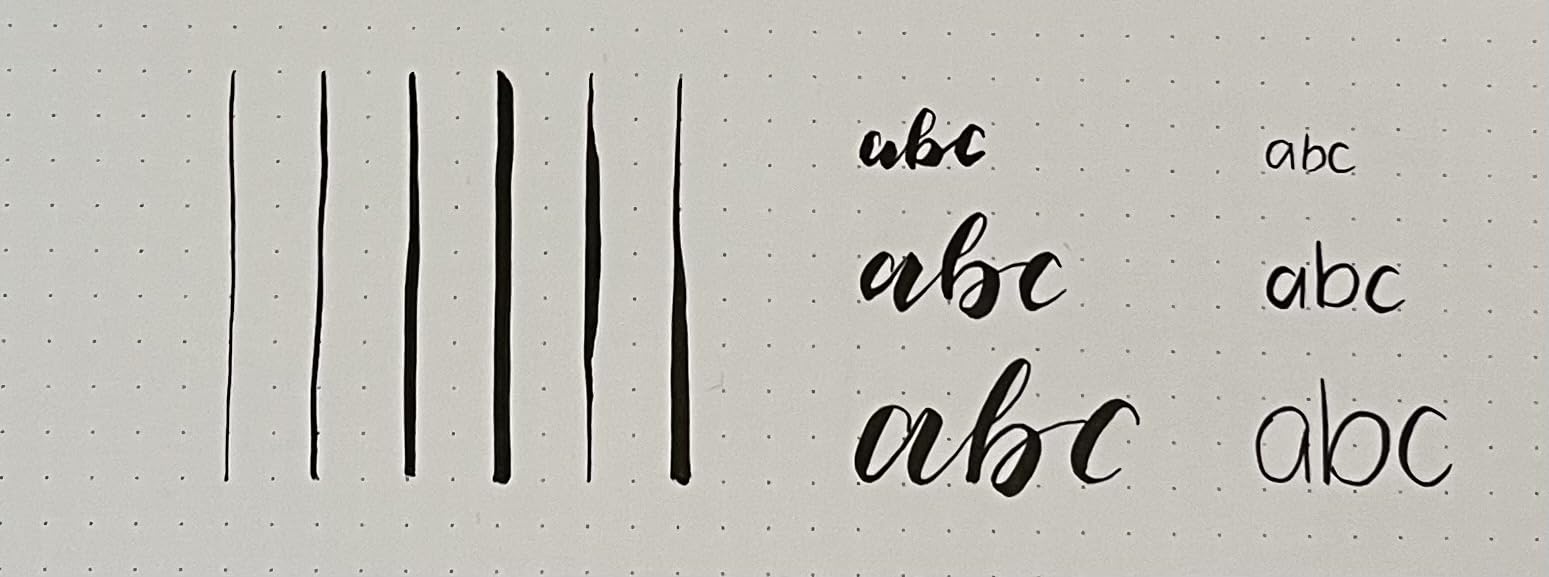 abc abc
abc abc
abc abc